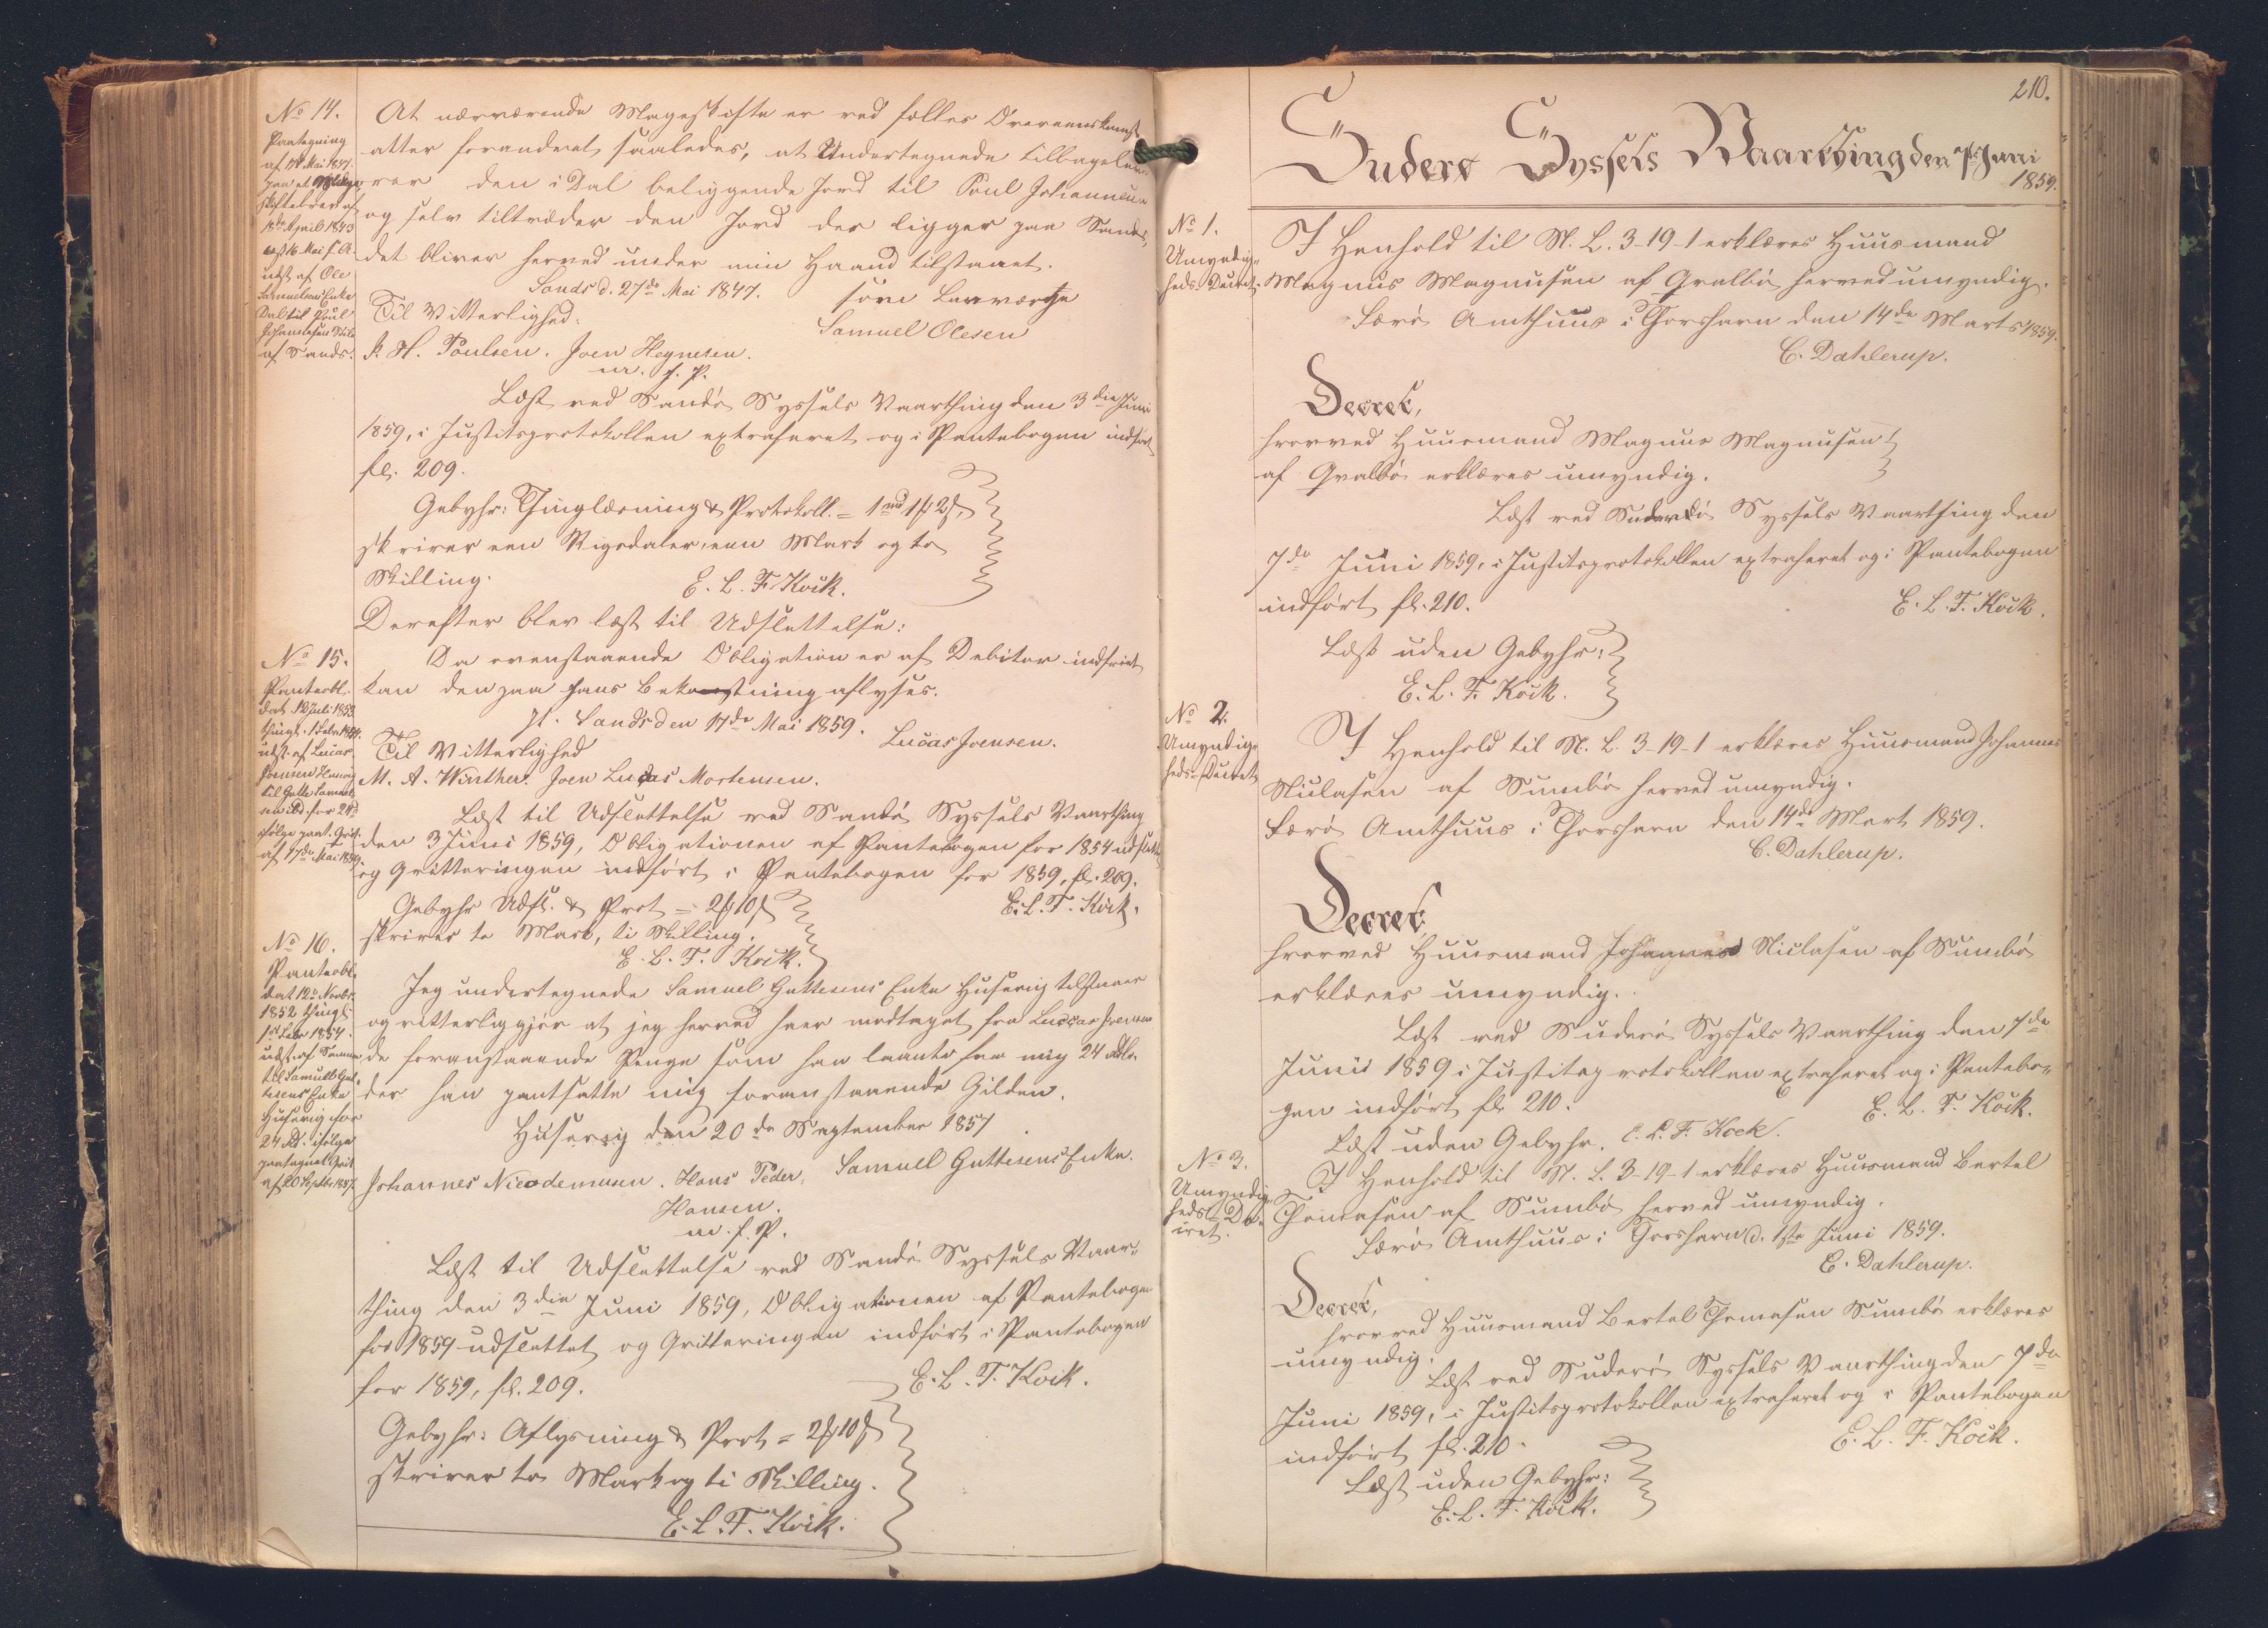 No 14.
Paategning
af 27 Mai 1847.
paa et Mage-
skiftebrev af
18de April 1843
læst 16 Mai s. A.
udst. af Ole
Samuelsens Enke
Dal til Poul
Johannesen
af Sands.
At nærværende Mageskifte er ved fælles Overeenskomst
atter forandret saaledes, at Undertegnede tilbagelev-
erer den i Dal beliggende Jord til Poul Johannesen
og selv tiltræder den Jord der ligger paa Sands,
det bliver herved under min Haand tilstaaet.
Sands d. 27de Mai 1847.
som Laugværge
Til Vitterlighed:
Samuel Olesen
P. H. Poulsen. Joen Heynesen.
m. f. P.
Læst ved Sandø Syssels Vaarthing den 3die Juni
1859, i Justitsprotokollen extraheret og i Pantebogen indført
fol. 209.
Gebyhr: Thinglæsning & Protokoll. = 1 rd 1 [mk] 2 s,
skriver een Rigsdaler, een Mark og to
Skilling.
E. L. F. Kock.
Derefter blev læst til Udslettelse:
No 15.
Panteobl.
dat. 12 Juli 1853
thingl. 1 Febr 1854.
udst. af Lucas
Joensen Husevig
til Gutte Samuel-
sen ibd. for 24 rd
ifølge paat. Qvit.
af 17de Mai 1859.
Da ovenstaaende Obligation er af Debitor indfriet
kan den paa hans Bekostning aflyses.
pt. Sands den 17de Mai 1859.
Lucas Joensen.
Til Vitterlighed
M. A. Winther. Joen Lucas Mortensen.
Læst til Udslettelse ved Sandø Syssels Vaarthing
den 3 Juni 1859, Obligationen af Pantebogen for 1854 udslettet
og Qvitteringen indført i Pantebogen for 1859, fol. 209.
Gebyhr Udsl. & Prot = 2 [mk] 10 s
E. L. F. Kock.
skriver to Mark, ti Skilling.
E. L. F. Kock.
No 16.
Panteobl.
dat 12te Novbr.
1852 thingl.
1st Febr 1854.
udst. af Samme
til Samuell Gut-
tesens Enke
Husevig for
24 Rd. ifølge
paategnet Qvit
af 20 Septbr 1857.
Jeg undertegnede Samuel Guttesens Enke Husevig tilstaaer
og vitterliggjør at jeg herved haver modtaget fra Lucas Joensen
de foranstaaende Penge som han laante fra mig 24 Rdlr.
der han pantsatte mig foranstaaende Gilden.
Husevig den 20de September 1857
Johannes Nicodemuun. Hans Peder,
Samuell Guttesens Enke.
Hansen.
m. f. P.
Læst til Udslettelse ved Sandø Syssels Vaar-
thing den 3die Juni 1859, Obligationen af Pantebogen
for 1859 udslettet og Qvitteringen indført i Pantebogen
for 1859, fol. 209.
E. L. F. Kock.
Gebyhr: Aflysning & Prot = 2 [mk] 10 s
skriver to Mark og ti Skilling.
E. L. F. Kock.
210.
Suderø Syssels Vaarthing den 7de Juni
1859.
No 1.
Umyndig-
heds-Decret.
I Henhold til N. L. 3-19-1 erklæres Huusmand
Magnus Magnusen af Qvalbø herved umyndig.
Færø Amthuus i Thorshavn den 14de Marts 1859.
C. Dahlerup.
Decret,
hvorved Huusmand Magnus Magnusen
af Qvalbø erklæres umyndig.
Læst ved Suderø Syssels Vaarthing den
7de Juni 1859, i Justitsprotokollen extraheret og i Pantebogen
indført fol. 210.
E. L. F. Kock.
Læst uden Gebyhr:
E. L. F. Kock.
No 2.
Umyndig-
heds-Decret
I Henhold til N. L. 3-19-1 erklæres Huusmand Johannes
Niclasen af Sumbø herved umyndig.
Færø Amthuus i Thorshavn den 14de Mart 1859.
C. Dahlerup.
Decret:
hvorved Huusmand Johannes Niclasen af Sumbø
erklæres umyndig.
Læst ved Suderø Syssels Vaarthing den 7de
Junii 1859 i Justitsprotokollen extraheret og i Pantebo-
gen indført fol. 210.
E. L. F. Kock.
Læst uden Gebyhr. E. L. F. Kock.
No 3.
Umyndig-
heds-De-
cret.
I Henhold til N. L. 3-19-1 erklæres Huusmand Bertel
Thomasen af Sumbø herved umyndig.
Færø Amthuus i Thorshavn d. 1ste Juni 1859.
C. Dahlerup.
Decret,
hvorved Huusmand Bertel Thomasen Sumbø erklæres
umyndig.
Læst ved Suderø Syssels Vaarthing den 7de
Juni 1859, i Justitsprotokollen extraheret og i Pantebogen
indført fol. 210.
E. L. F. Kock.
Læst uden Gebyhr:
E. L. F. Kock.